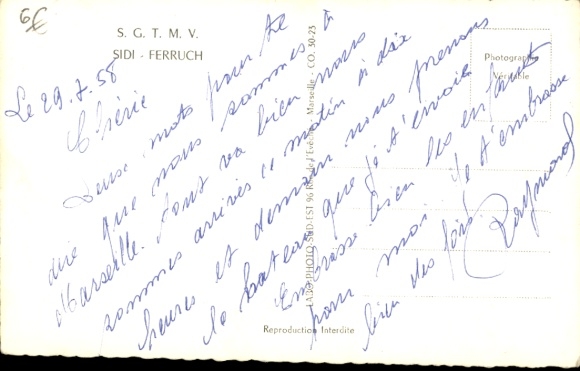 6€
S. G. T. M. V.
SIDI - FERRUCH
Photographie
Véritable
LABO PHOTO-SUD-EST 96 Rue de l'Evêché - Marseille - CO. 30-23
Reproduction Interdite
Le 29.7.58
Chérie
Deux mots pour te
dire que nous sommes à
Marseille. Tout va bien nous
sommes arrivés ce matin à dix
heures et demain nous prenons
le bateau que je t'envoie
Embrasse bien les enfants
pour moi. Je t'embrasse
bien des fois.
Raymond